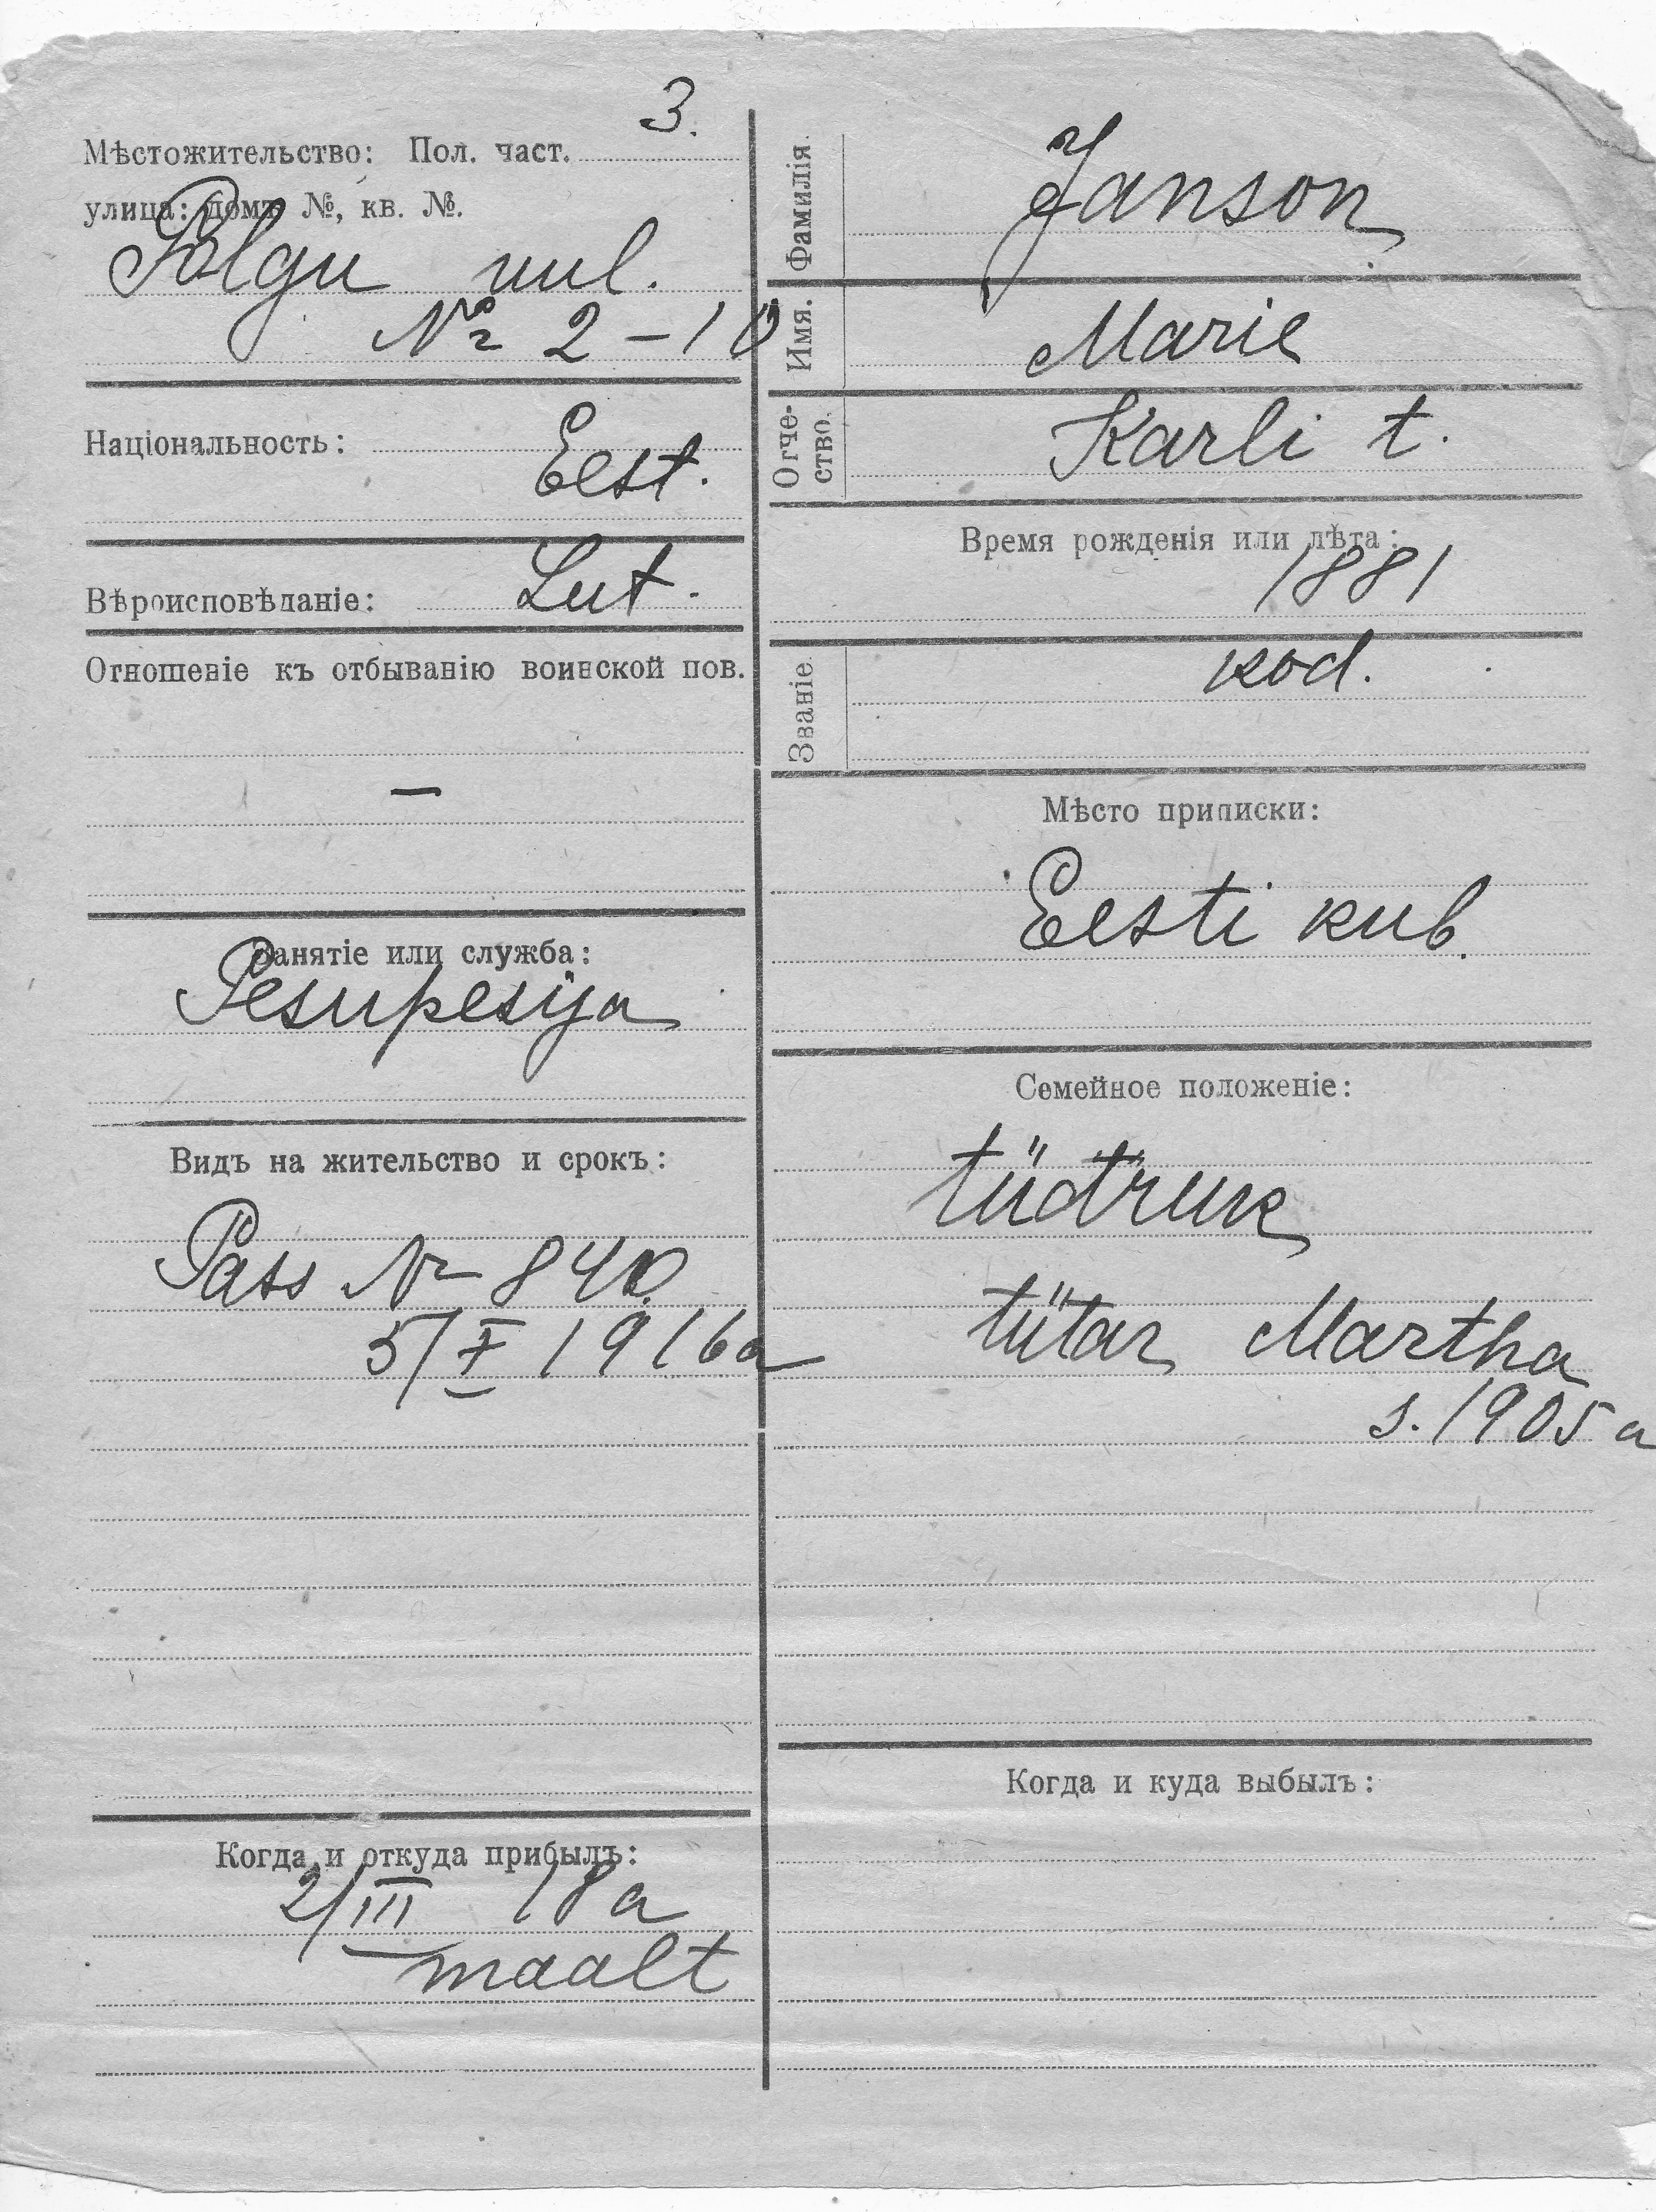 3.
Мѣстожительство: Пол. част.
улица: домъ №, кв. №.
Polgu uul.
№ 2 – 10
Національность:
Eest.
Вѣроисповѣданіе: Lut.
Отношеніе къ отбыванію воинской пов.
—
Занятіе или служба:
Pesupesija
Видъ на жительство и срокъ:
Pass № 840.
5/X 1916 a
Когда и откуда прибылъ:
2/III 18 a
maalt
Фамилія.
Janson
Имя.
Marie
Отче-
ство.
Karli t.
Время рожденія или лѣта:
1881
Званіе.
kod.
Мѣсто приписки:
Eesti kub.
Семейное положеніе:
tüdruk
tütar Martha
s. 1905 a
Когда и куда выбылъ: